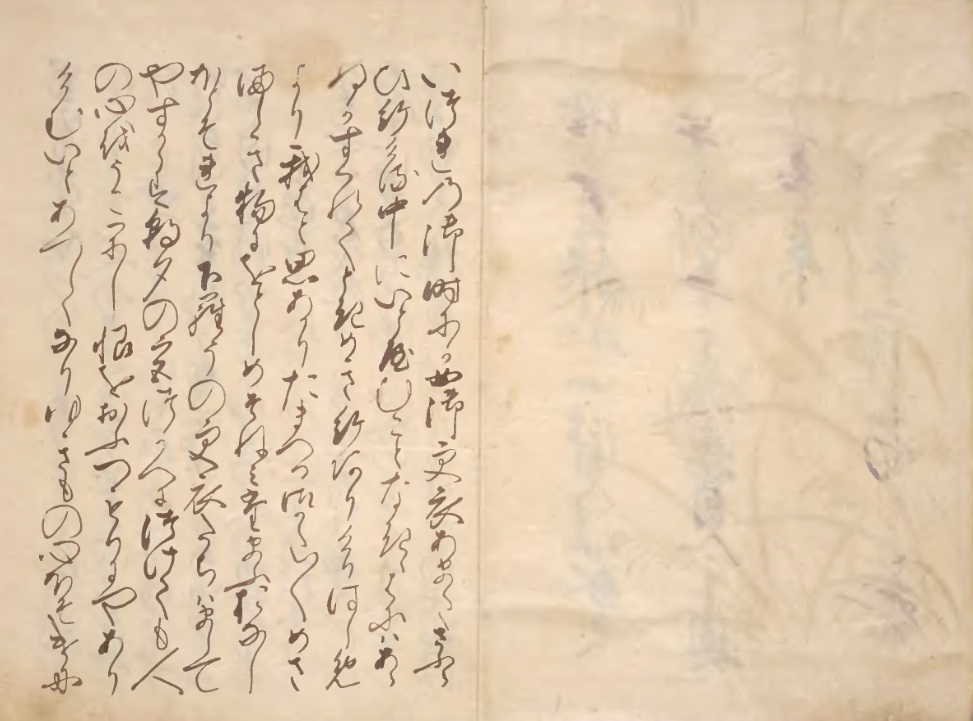 いつれの御時にか女御更衣あまたさふら
ひ給ける中にいとやむことなききはにはあら
ぬかすくれてときめき給ありけりはしめ
より我はと思あかりたまへる御かた〱めさ
ましき物にをとしめそねみ給ふおなし
ほとそれより下らうの更衣たちはまして
やすからす朝夕の宮つかへにつけても人
の心をうこかし恨をおふつもりにやあり
けむいとあつしくなりゆきもの心ほそけに